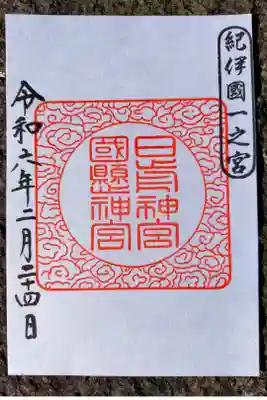 紀伊國一之宮
日前神宮
國縣神宮
令和六年二月二十四日